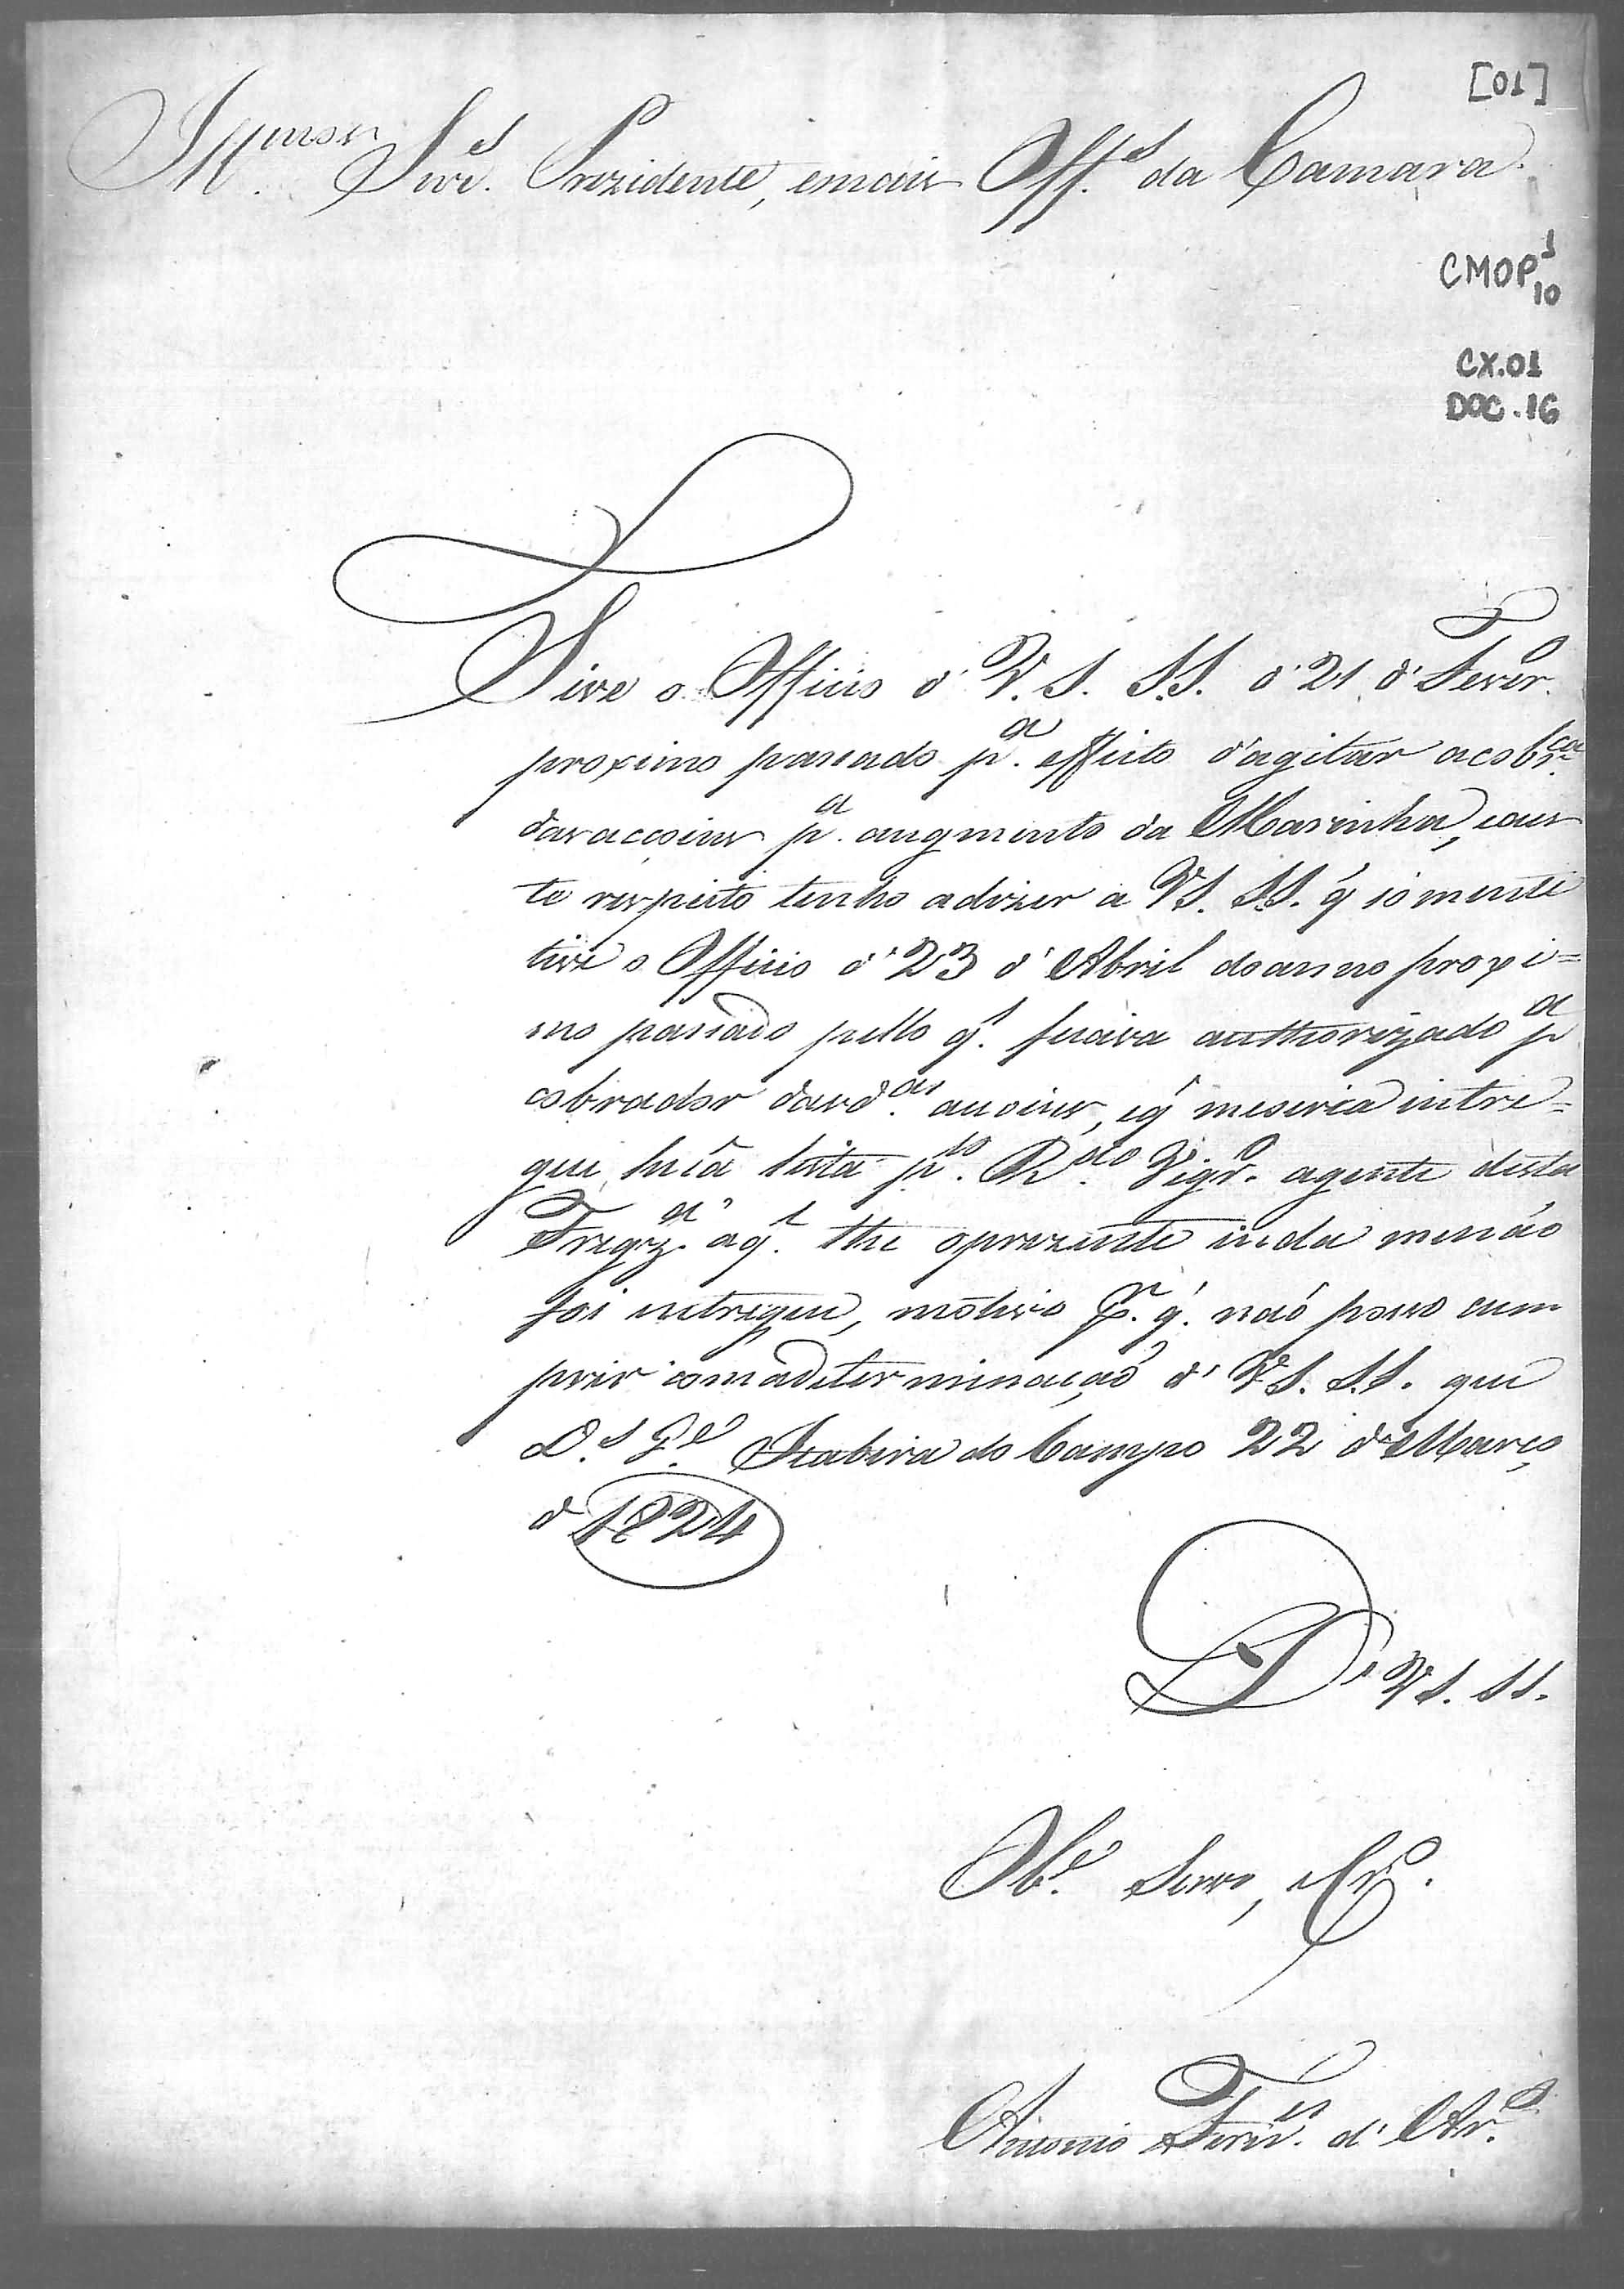 [01]
Ill.mos Snr.es Prezidente, emais Off.es da Camara.
CMOP 1
10
CX.01
DOC.16
Tive o Officio d' V. S. S.S. d' 21 d' Fever.o
proximo passado p.a effeito d'agitar acobr.ca
dasaccoins p.a augmento da Marinha,
te respeito tenho adizer a VS. S.S. q' sómente
tive o Officio d' 23 d' Abril doanno proxi=
mo passado pello q.l ficava authorizado p.a
cobrador dasd.as accoins, eq' meseria intre=
gue huã lista p.lo R.do Vigr.o agente desta
Fregz.a aq.l the oprezente inda menaó
foi intregue, motivo p.r q'. naó posso cum
prir comadeterminaçaó d' VS. S.S. que
D.s G.e Itabira do Campo 22 d' Março
d 1824
D' VS. SS.
Ob.e Servo, Cr.o
Antonio d' Ar.o